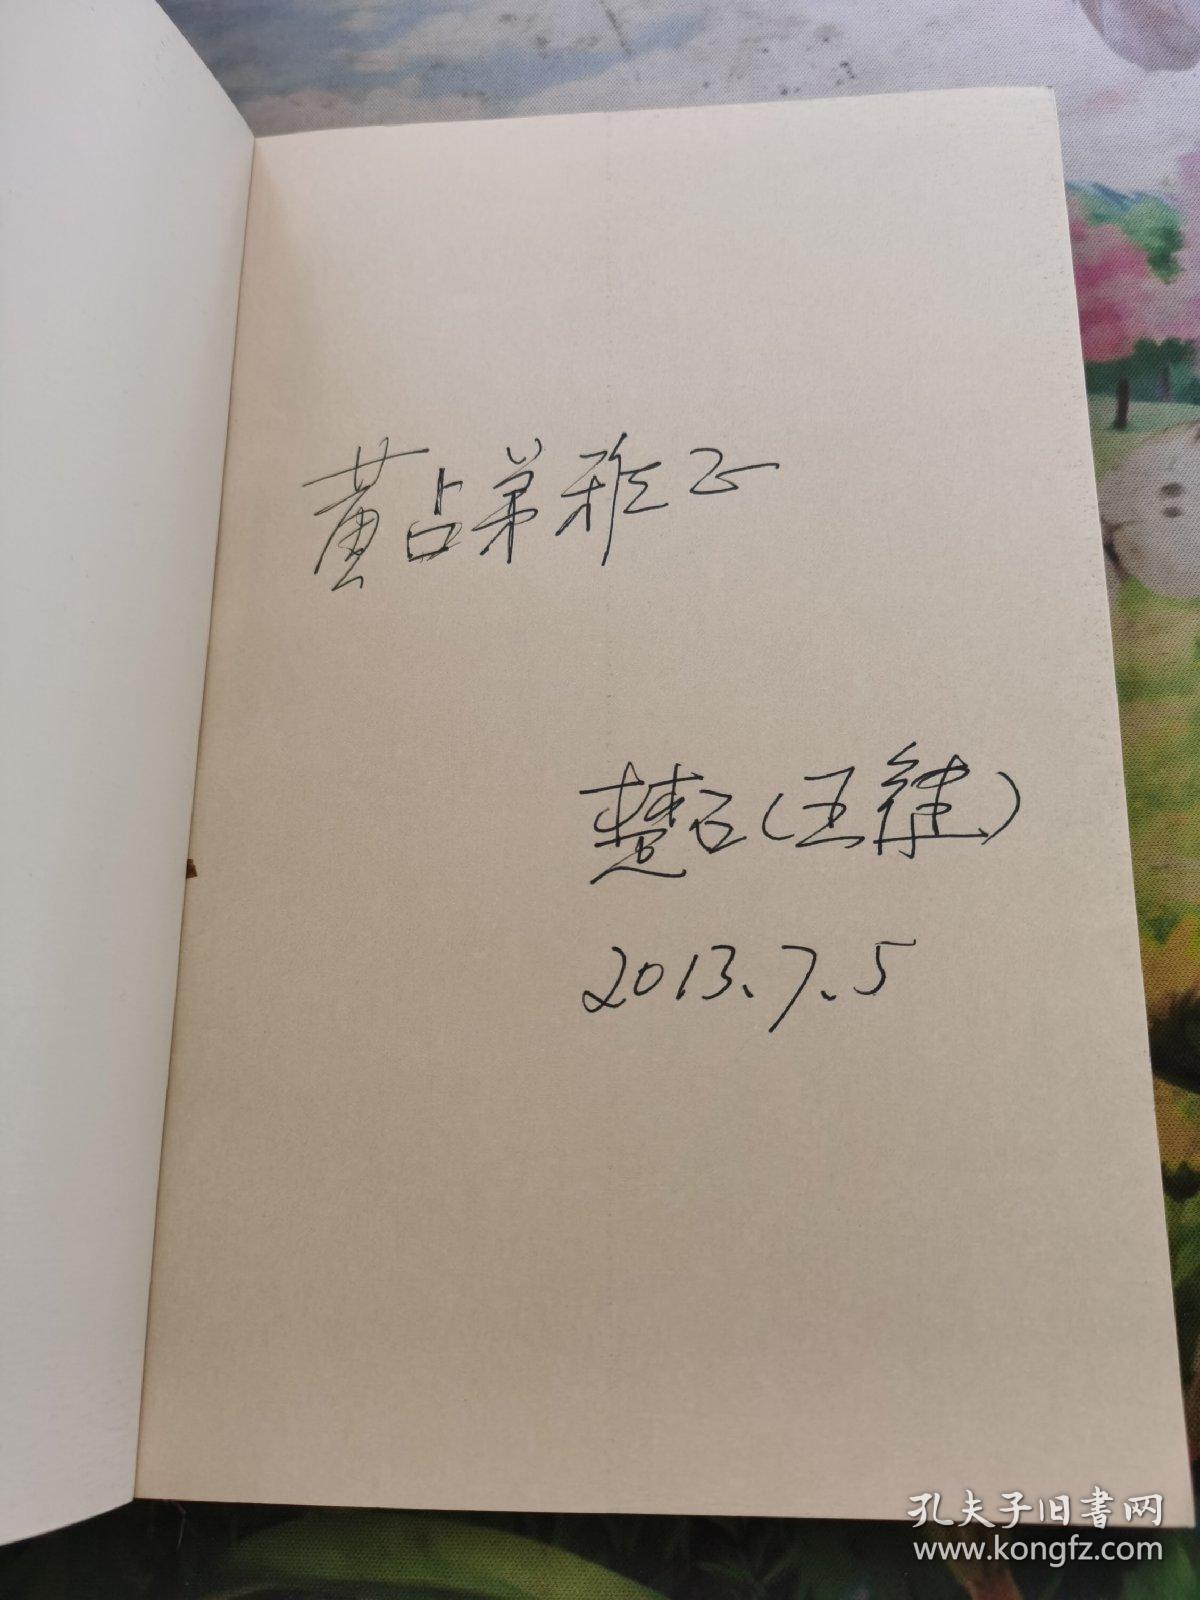 黄占弟雅正
楚石(王维)
2013.7.5
孔夫子旧书网
www.kongfz.com